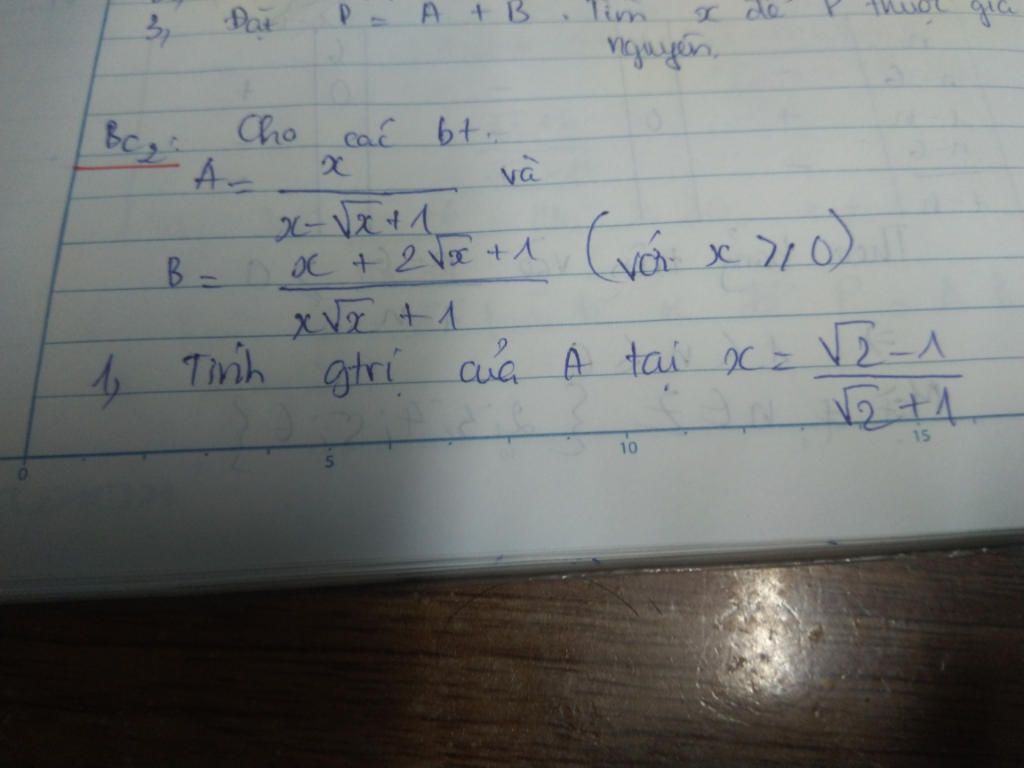 3, Đặt P = A + B. Tìm x để P thuộc giá
nguyên.
Bc2: Cho các bt:
A = x / (x - √x + 1) và
B = (x + 2√x + 1) / (x√x + 1) (với x ≥ 0)
1, Tính gtrị của A tại x = (√2 - 1) / (√2 + 1)
0 5 10 15